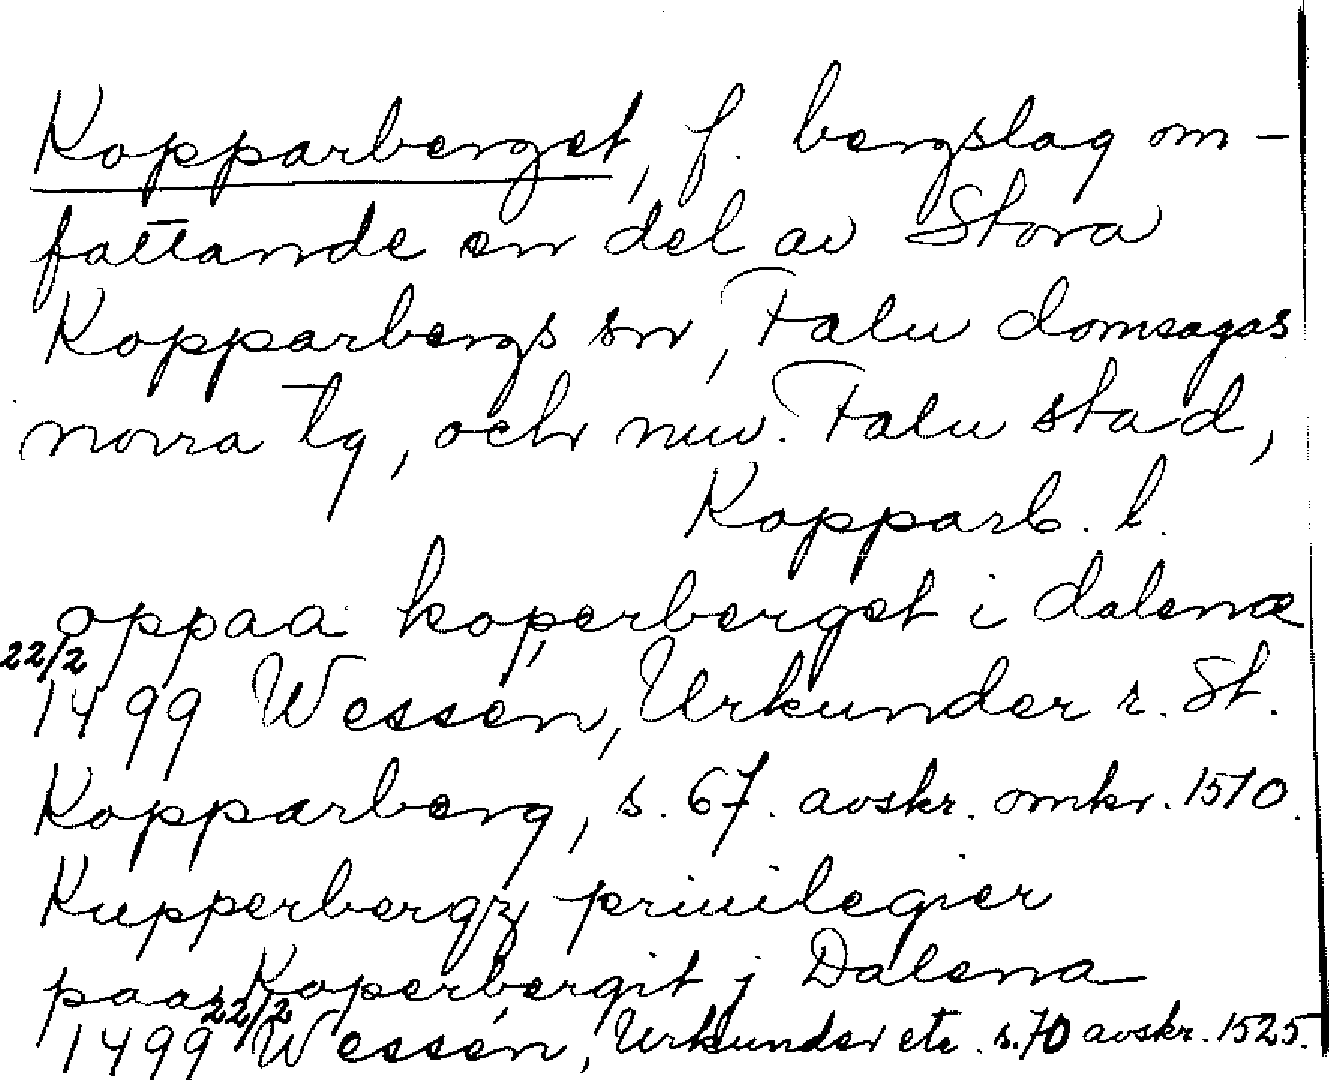 Kopparberget, f. bergslag om-
fattande en del av Stora
Kopparbergs sn, Falu domsagas
norra tg, och nuv. Falu stad,
Kopparb. l.
oppaa koperberget i dalena
22/2
1499 Wessén, Urkunder r. St.
Kopparberg, s. 67. avskr. omkr. 1510.
Kupperbergz priuilegier
paa Koperbergit j Dalena
1499 22/2 Wessén, Urkunder etc. s. 70 avskr. 1525.